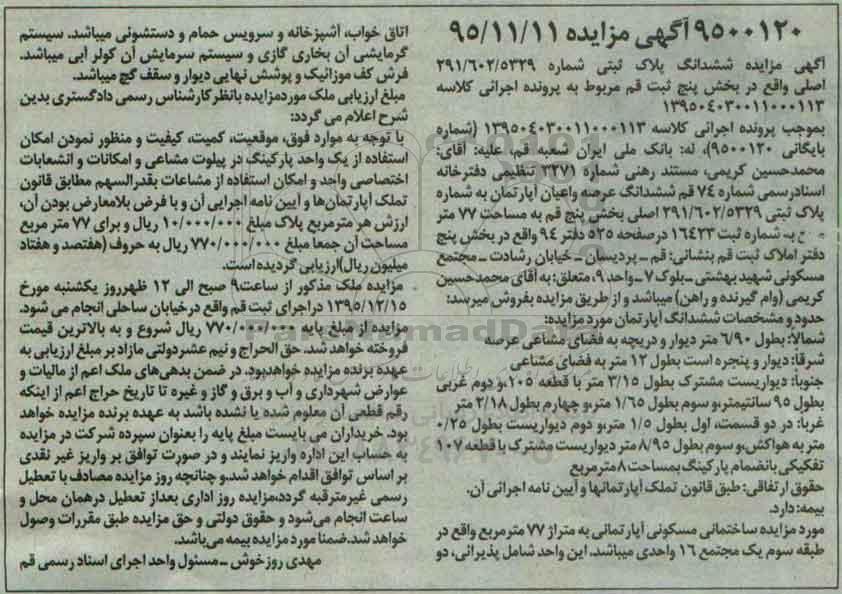 ۹۵۰۰۱۲۰ آگهی مزایده ۹۵/۱۱/۱۱
آگهی مزایده ششدانگ پلاک ثبتی شماره ۲۹۱/۶۰۲/۵۳۲۹
اصلی واقع در بخش پنج ثبت قم مربوط به پرونده اجرائی کلاسه
۱۳۹۵۰۴۰۳۰۰۱۱۰۰۰۱۱۳
بموجب پرونده اجرائی کلاسه ۱۳۹۵۰۴۰۳۰۰۱۱۰۰۰۱۱۳ (شماره
بایگانی ۹۵۰۰۱۲۰)، له: بانک ملی ایران شعبه قم، علیه: آقای:
محمدحسین کریمی، مستند رهنی شماره ۳۲۷۱ تنظیمی دفترخانه
اسنادرسمی شماره ۷۴ قم ششدانگ عرصه واعیان آپارتمان به شماره
پلاک ثبتی ۲۹۱/۶۰۲/۵۳۲۹ اصلی بخش پنج قم به مساحت ۷۷ متر
به شماره ثبت ۱۶۴۲۳ درصفحه ۵۲۵ دفتر ۹۴ واقع در بخش پنج
دفتر املاک ثبت قم بنشانی: قم ـ پردیسان ـ خیابان رشادت ـ مجتمع
مسکونی شهید بهشتی ـ بلوک ۷ ـ واحد ۹، متعلق: به آقای محمدحسین
کریمی (وام گیرنده و راهن) میباشد و از طریق مزایده بفروش میرسد:
حدود و مشخصات ششدانگ آپارتمان مورد مزایده:
شمالاً: بطول ۶/۹۰ متر دیوار و دریچه به فضای مشاعی عرصه
شرقاً: دیوار و پنجره است بطول ۱۲ متر به فضای مشاعی
جنوباً: دیواریست مشترک بطول ۳/۱۵ متر با قطعه ۱۰۵، و دوم غربی
بطول ۹۵ سانتیمتر، و سوم بطول ۱/۶۵ متر، و چهارم بطول ۲/۱۸ متر
غرباً: در دو قسمت، اول بطول ۱/۵ متر، و دوم دیواریست بطول ۰/۲۵
متر به هواکش، و سوم بطول ۸/۹۵ متر دیواریست مشترک با قطعه ۱۰۷
تفکیکی بانضمام پارکینگ بمساحت ۸ مترمربع
حقوق ارتفاقی: طبق قانون تملک آپارتمانها و آیین نامه اجرائی آن.
بیمه: دارد.
مورد مزایده ساختمانی مسکونی آپارتمانی به متراژ ۷۷ مترمربع واقع در
طبقه سوم یک مجتمع ۱۶ واحدی میباشد. این واحد شامل پذیرائی، دو
اتاق خواب، آشپزخانه و سرویس حمام و دستشوئی میباشد. سیستم
گرمایشی آن بخاری گازی و سیستم سرمایش آن کولر آبی میباشد.
فرش کف موزائیک و پوشش نهایی دیوار و سقف گچ میباشد.
مبلغ ارزیابی ملک موردمزایده بانظر کارشناس رسمی دادگستری بدین
شرح اعلام می گردد:
با توجه به موارد فوق، موقعیت، کمیت، کیفیت و منظور نمودن امکان
استفاده از یک واحد پارکینگ در پیلوت مشاعی و امکانات و انشعابات
اختصاصی واحد و امکان استفاده از مشاعات بقدرالسهم مطابق قانون
تملک آپارتمان‌ها و آیین نامه اجرایی آن و با فرض بلامعارض بودن آن،
ارزش هر مترمربع پلاک مبلغ ۱۰/۰۰۰/۰۰۰ ریال و برای ۷۷ متر مربع
مساحت آن جمعا مبلغ ۷۷۰/۰۰۰/۰۰۰ ریال به حروف (هفتصد و هفتاد
میلیون ریال) ارزیابی گردیده است.
مزایده ملک مذکور از ساعت ۹ صبح الی ۱۲ ظهر روز یکشنبه مورخ
۱۳۹۵/۱۲/۱۵ دراجرای ثبت قم واقع درخیابان ساحلی انجام می شود.
مزایده از مبلغ پایه ۷۷۰/۰۰۰/۰۰۰ ریال شروع و به بالاترین قیمت
فروخته خواهد شد. حق الحراج و نیم عشر دولتی مازاد بر مبلغ ارزیابی به
عهده برنده مزایده خواهدبود. در ضمن بدهی‌های ملک اعم از مالیات و
عوارض شهرداری و آب و برق و گاز و غیره تا تاریخ حراج اعم از اینکه
رقم قطعی آن معلوم شده یا نشده باشد به عهده برنده مزایده خواهد
بود. خریداران می بایست مبلغ پایه را بعنوان سپرده شرکت در مزایده
به حساب این اداره واریز نمایند و در صورت توافق بر واریز غیر نقدی
بر اساس توافق اقدام خواهد شد. و چنانچه روز مزایده مصادف با تعطیل
رسمی غیرمترقبه گردد، مزایده روز اداری بعداز تعطیل درهمان محل و
ساعت انجام می‌شود و حقوق دولتی و حق مزایده طبق مقررات وصول
خواهد شد. ضمنا مورد مزایده بیمه می‌باشد.
مهدی روزخوش ـ مسئول واحد اجرای اسناد رسمی قم